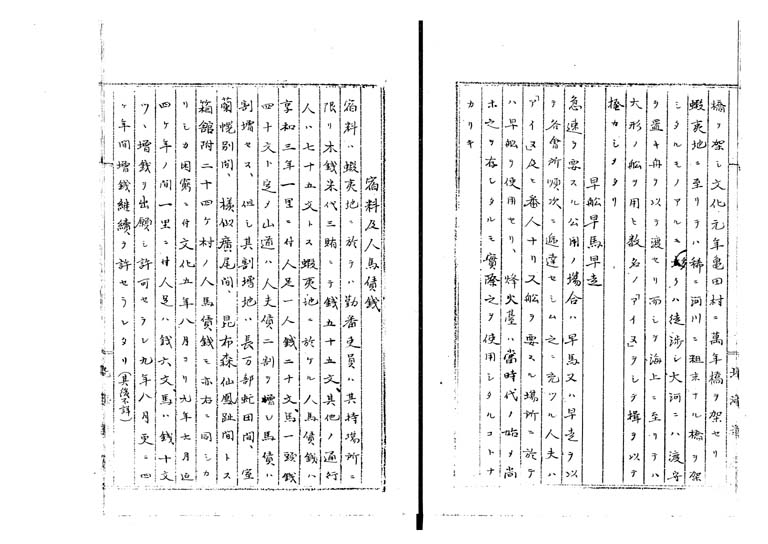 橋ヲ架シ文化元年亀田村ニ萬年橋ヲ架セリ
蝦夷地ニ至リテハ稀ニ河川ニ粗末ナル橋ヲ架
シタルモノアルモ多クハ徒渉シ大河ニハ渡守
ヲ置キ舟ヲ以テ渡セリ而シテ海上ニ至リテハ
大形ノ船ヲ用ヒ数名ノ「アイヌ」ヲシテ楫ヲ以テ
撞カシメタリ
早船早馬早走
急速ヲ要スル公用ノ場合ハ早馬又ハ早走ヲ以
テ各會所順次ニ逓達セシム之ニ充ツル人夫ハ
「アイヌ」及ヒ番人ナリ又船ヲ要スル場所ニ於テ
ハ早船ヲ使用セリ、烽火臺ハ當時代ノ始メ尚
ホ之ヲ存シタルモ實際之ヲ使用シタルコトナ
カリキ
宿料及人馬賃錢
宿料ハ蝦夷地ニ於テハ勤番吏員ハ其持場所ニ
限リ木錢米代三賄ニテ錢五十五文、其他ノ通行
人ハ七十五文トス蝦夷地ニ於ケル人馬賃錢ハ
享和三年一里ニ付人足一人錢二十文、馬一頭錢
四十文ト定メ山道ハ人夫賃二割ヲ増シ馬賃ハ
割増セス、但シ其割増地ハ長万部虻田間、室
蘭幌別間、様似廣尾間、昆布森仙鳳趾間トス
箱館附二十四ケ村ノ人馬賃錢モ亦右ニ同シカ
リシカ困窮ニ付文化五年八月ヨリ九年七月迄
四ケ年ノ間一里ニ付人足ハ錢六文、馬ハ錢十文
ツヽ増錢ヲ出願シ許可セラレ九年八月更ニ四
ケ年間増錢継續ヲ許セラレタリ（其後不詳）